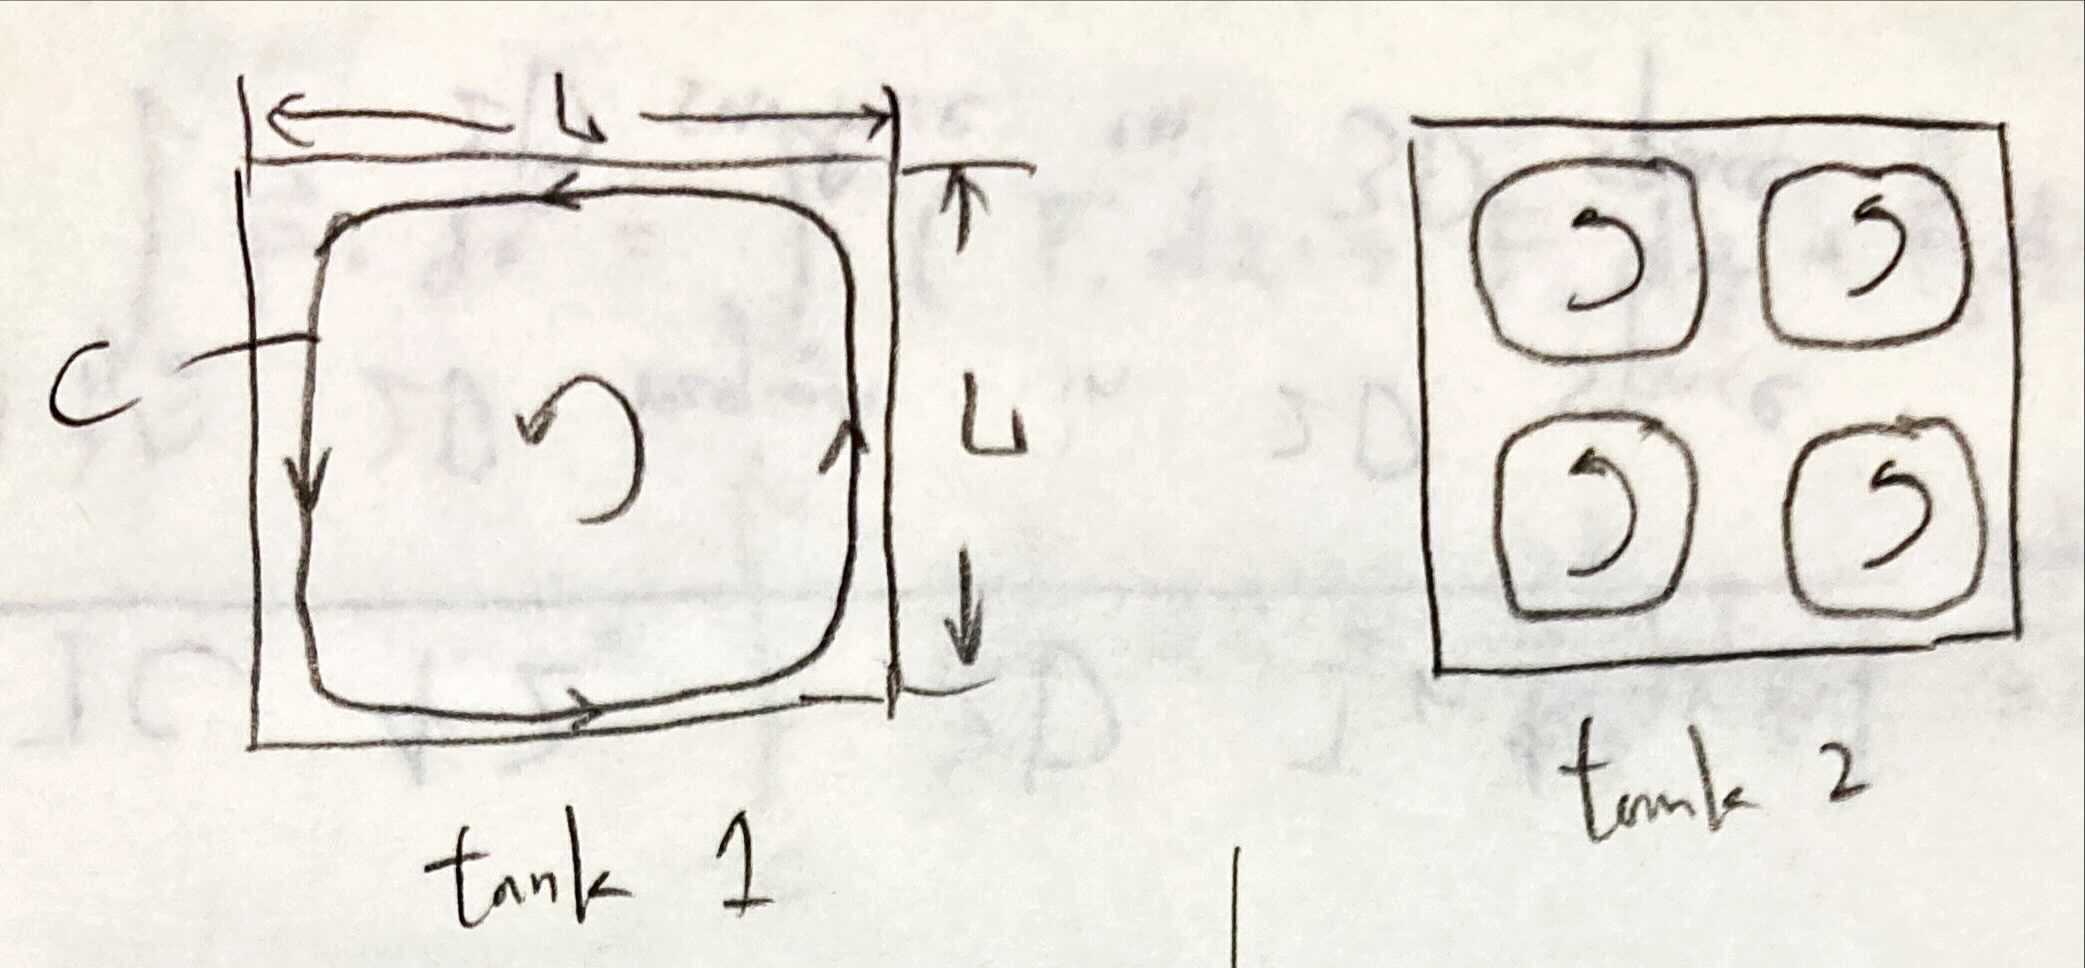 L
L
C
tank 1
tank 2